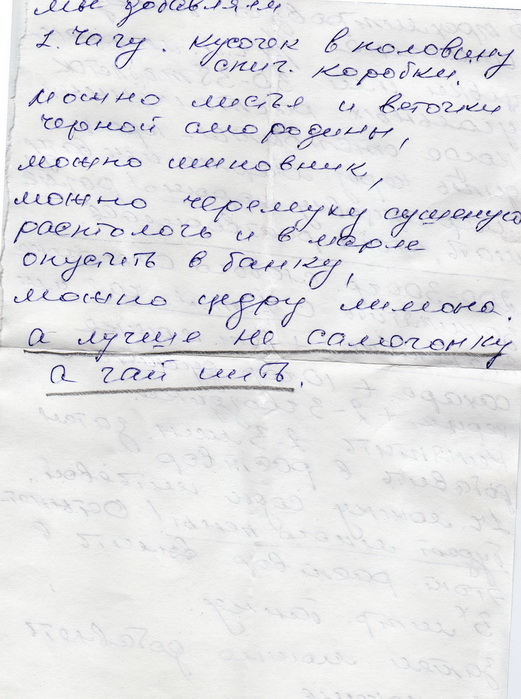 мы добавляем
1. Чагу. кусочек в половину
спич. коробки.
можно листья и веточки
черной смородины,
можно шиповник,
можно черемуху сушеную
растолочь и в марле
опустить в банку,
можно цедру лимона.
а лучше не самогонку
а чай пить.